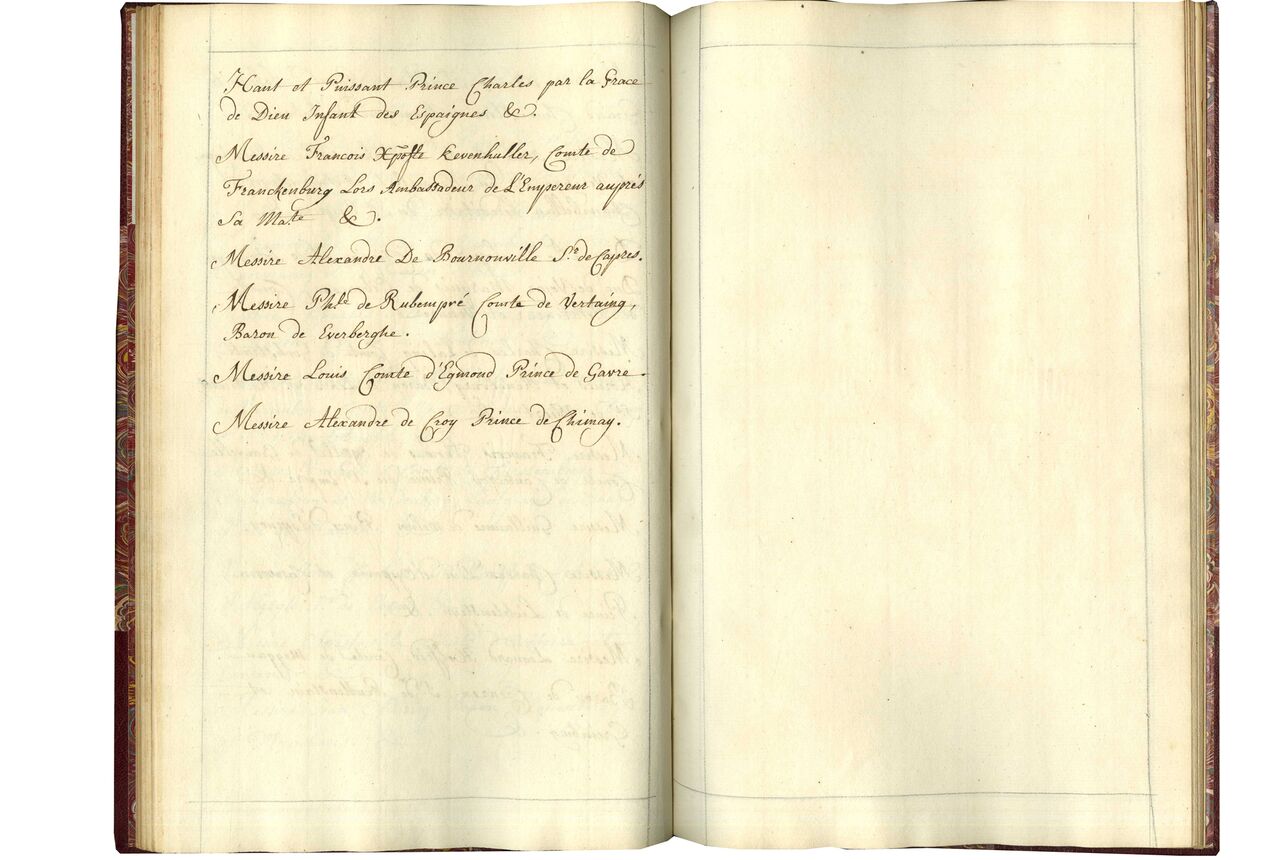 Haut et Puissant Prince Charles par la Grace
de Dieu Infant des Espaignes &.
Messire Francois Xpofle Kevenhuller, Comte de
Franckenburg Lors Ambassadeur de L'Empereur auprés
Sa Ma.te &.
Messire Alexandre De Bournonville S.r de Capres.
Messire Ph.le de Rubempré Comte de Vertaing,
Baron de Everberghe.
Messire Louis Comte d'Egmond Prince de Gavre.
Messire Alexandre de Croy Prince de Chimay.